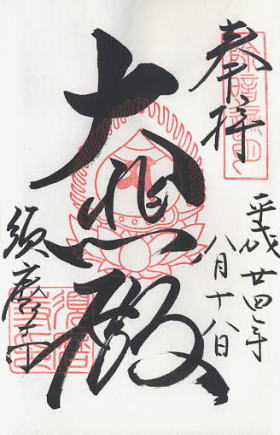 奉拝
平成廿四年
八月十八日
大悲殿
須磨寺